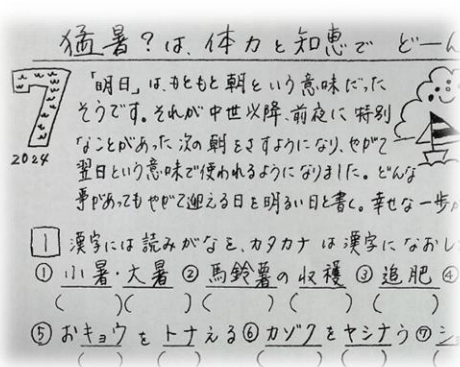 猛暑?は、体力と知恵で どーん
7
2024
「明日」は、もともと朝という意味だった
そうです。それが中世以降、前夜に特別
なことがあった次の朝をさすようになり、やがて
翌日という意味で使われるようになりました。どんな
事があってもやがて迎える日を明るい日と書く。幸せな一歩が
1 漢字には読みがなを、カタカナは漢字になおし
① 小暑・大暑 ② 馬鈴薯の収穫 ③ 追肥 ④
( )( ) ( ) ( ) ( )
⑤ おキョウをトナえる ⑥ カゾクをヤシナう ⑦
( ) ( ) ( ) ( )